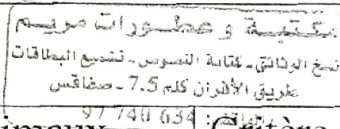 مكتبة و عطورات مريم
نسخ الوثائق - كتابة النصوص - تشميع البطاقات
طريق الأفران كلم 7.5 - صفاقس
الهاتف: 97 740 634